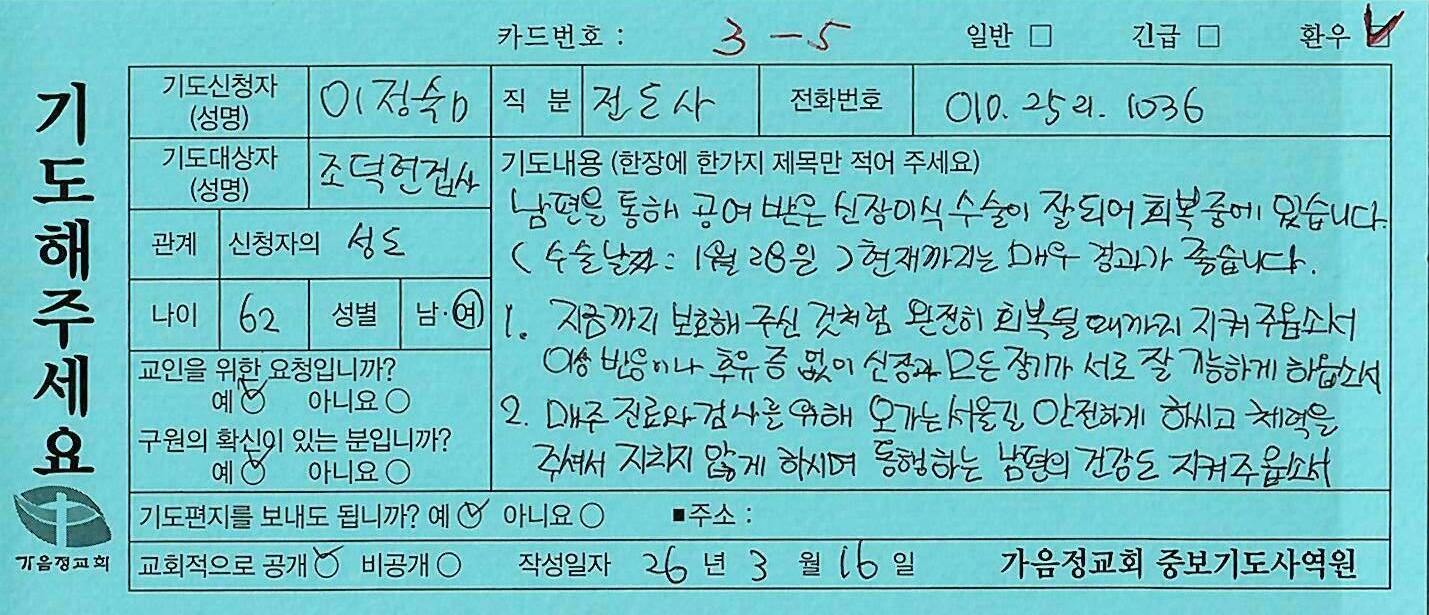 카드번호 : 3 - 5 일반 □ 긴급 □ 환우 ☑
기도해주세요
가음정교회
기도신청자 (성명) 이정숙b 직 분 전도사 전화번호
기도대상자 (성명) 조덕현집사
관계 신청자의 성도
나이 62 성별 남·여
교인을 위한 요청입니까?
예 ☑ 아니요 ○
구원의 확신이 있는 분입니까?
예 ☑ 아니요 ○
기도내용 (한장에 한가지 제목만 적어 주세요)
남편을 통해 공여 받은 신장이식 수술이 잘되어 회복중에 있습니다.
(수술날짜 : 1월 28일) 현재까지는 매우 경과가 좋습니다.
1. 지금까지 보호해 주신 것처럼 완전히 회복될 때까지 지켜 주옵소서
이상 반응이나 후유증 없이 신장과 모든 장기가 서로 잘 기능하게 하옵소서
2. 매주 진료와 검사를 위해 오가는 서울길 안전하게 하시고 체력을
주셔서 지치지 않게 하시며 동행하는 남편의 건강도 지켜주옵소서
기도편지를 보내도 됩니까? 예 ☑ 아니요 ○ ■주소 :
교회적으로 공개 ☑ 비공개 ○ 작성일자 26 년 3 월 16 일 가음정교회 중보기도사역원